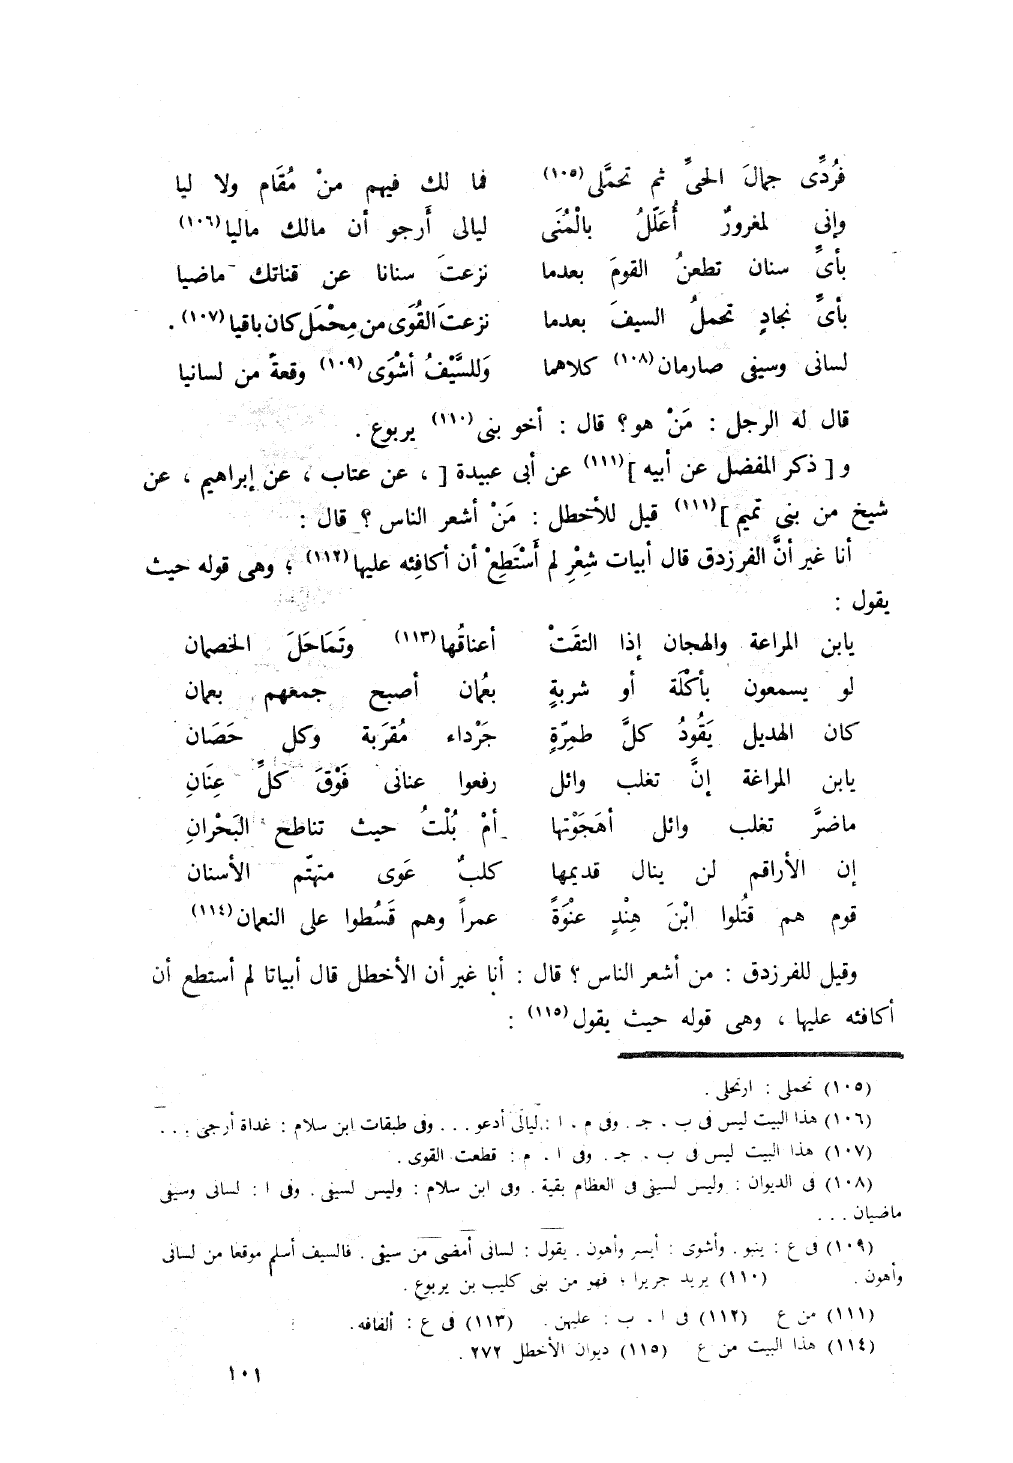 فرُدِّى جمالَ الحىِّ ثم تحمَّلى(١٠٥) فما لك فيهم منْ مُقَام ولا ليا
وإنى لمغرورٌ أُعَلّلُ بالْمُنَى ليالى أَرجو أن مالك ماليا(١٠٦)
بأىِّ سنان تطعنُ القومَ بعدما نزعتَ سنانا عن قناتك ماضيا
بأىِّ نجادٍ تحملُ السيفَ بعدما نزعتَ القُوَى من مِحْمَل كان باقيا(١٠٧) .
لسانى وسيفى صارمان(١٠٨) كلاهما وَللسَّيْفُ أشْوَى(١٠٩) وقعةً من لسانيا
قال له الرجل : مَنْ هو؟ قال : أخو بنى(١١٠) يربوع .
و [ ذكر المفضل عن أبيه ](١١١) عن أبى عبيدة [ ، عن عتاب ، عن إبراهيم ، عن
شيخ من بنى تميم ](١١١) قيل للأخطل : مَنْ أشعر الناس ؟ قال :
أنا غير أنَّ الفرزدق قال أبيات شِعْرِ لم أَسْتَطِعْ أن أكافِئه عليها(١١٢) ؛ وهى قوله حيث
يقول :
يابن المراعة والهجان إذا التقَتْ أعناقُها(١١٣) وتَمَاحَلَ الخصمان
لو يسمعون بأكْلَة أو شربةٍ بعُمان أصبح جمعهم بعمان
كان الهذيل يَقُودُ كلَّ طمِرّةٍ جَرْداء مُقرَبة وكل حَصَان
يابن المراغة إنَّ تغلب وائل رفعوا عنانى فَوْقَ كلِّ عِنَانِ
ماضرَّ تغلب وائل أهَجَوْتها أمْ بُلْتُ حيث تناطح البَحْرانِ
إن الأراقم لن ينال قديمها كلبٌ عَوى متهتّم الأسنان
قوم هم قتُلوا ابْنَ هِنْدٍ عنْوَةً عمراً وهم قَسُطوا على النعمان(١١٤)
وقيل للفرزدق : من أشعر الناس ؟ قال : أنا غير أن الأخطل قال أبياتا لم أستطع أن
أكافئه عليها ، وهى قوله حيث يقول(١١٥) :
(١٠٥) تحملى : ارتحلى .
(١٠٦) هذا البيت ليس فى ب . جـ . وفى م . ا : ليالى أدعو . . . وفى طبقات ابن سلام : غداة أرجى . . .
(١٠٧) هذا البيت ليس فى ب . جـ . وفى ا . م : قطعت القوى .
(١٠٨) فى الديوان : وليس لسيفى فى العظام بقية . وفى ابن سلام : وليس لسيفى . وفى ا : لسانى وسيفى
ماضيان . . .
(١٠٩) فى ع : ينبو . وأشوى : أيسر وأهون . يقول : لسانى أمضى من سيفى . فالسيف أسلم موقعا من لسانى
وأهون . (١١٠) يريد جريرا ؛ فهو من بنى كليب بن يربوع .
(١١١) من ع (١١٢) فى ا . ب : عليهن . (١١٣) فى ع : ألفافه .
(١١٤) هذا البيت من ع (١١٥) ديوان الأخطل ٢٧٢ .
١٠١